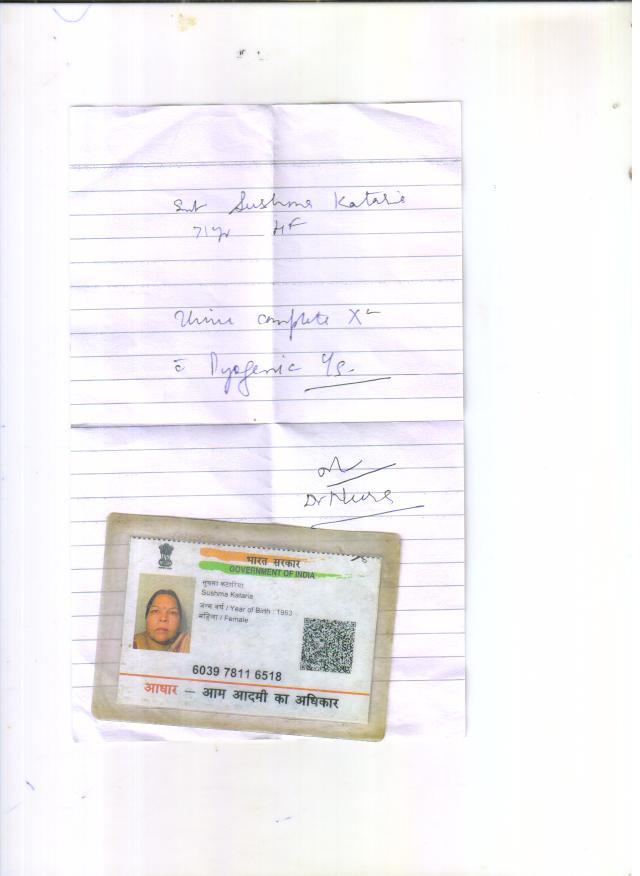 Smt Sushma Kataria
71 yr F
Urine complete
c̄ Pyogenic c/s.
Dr
भारत सरकार
GOVERNMENT OF INDIA
सुषमा कटारिया
Sushma Kataria
जन्म वर्ष / Year of Birth : 1953
महिला / Female
6039 7811 6518
आधार – आम आदमी का अधिकार